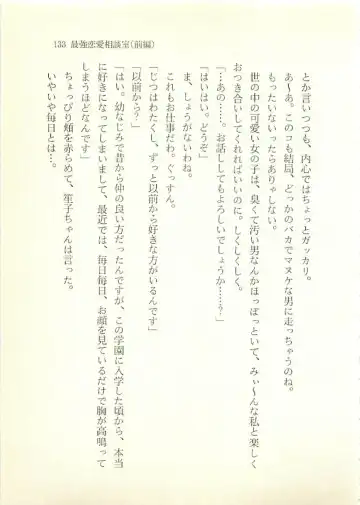 133 最強恋愛相談室(前編)
とか言いつつも、内心ではちょっとガッカリ。
あ〜あ。このコも結局、どっかのバカでマヌケな男に走っちゃうのね。
もったいないったらありゃしない。
世の中の可愛い女の子は、臭くて汚い男なんかほっぽっといて、みぃ〜んな私と楽しく
おつき合いしてくれればいいのに。しくしくしく。
「…あの…。お話ししてもよろしいでしょうか……?」
「はいはい。どうぞ」
ま、しょうがないわね。
これもお仕事だわ。ぐっすん。
「じつはわたくし、ずっと以前から好きな方がいるんです」
「以前から?」
「はい。幼なじみで昔から仲の良い方だったんですが、この学園に入学した頃から、本当
に好きになってしまいまして、最近では、毎日毎日、お顔を見ているだけで胸が高鳴って
しまうほどなんです」
ちょっぴり頬を赤らめて、笙子ちゃんは言った。
いやいや毎日とは…。